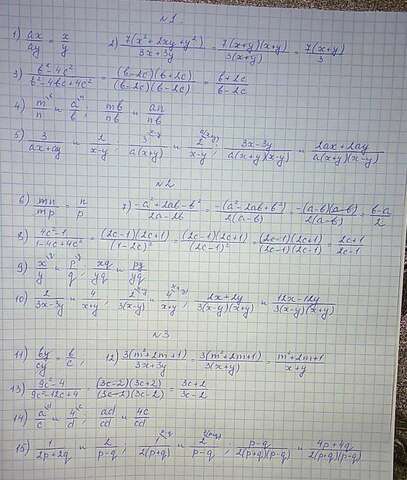 №1
1) ax/ay = x/y   2) 7(x²+2xy+y²)/3x+3y = 7(x+y)(x+y)/3(x+y) = 7(x+y)/3
3) b²-4c²/b²-4bc+4c² = (b-2c)(b+2c)/(b-2c)(b-2c) = b+2c/b-2c
4) m/n и a/b ; mb/nb и an/nb
5) 3/ax+ay и 2/x-y ; 3/a(x+y) и 2/x-y ; 3x-3y/a(x+y)(x-y) и 2ax+2ay/a(x+y)(x-y)
№2
6) mn/mp = n/p   7) -a²+2ab-b²/2a-2b = -(a²-2ab+b²)/2(a-b) = -(a-b)(a-b)/2(a-b) = b-a/2
8) 4c²-1/1-4c+4c² = (2c-1)(2c+1)/(1-2c)² = (2c-1)(2c+1)/(2c-1)² = (2c-1)(2c+1)/(2c-1)(2c-1) = 2c+1/2c-1
9) x/y и p/q ; xq/yq и py/yq
10) 2/3x-3y и 4/x+y ; 2/3(x-y) и 4/x+y ; 2x+2y/3(x-y)(x+y) и 12x-12y/3(x-y)(x+y)
№3
11) by/cy = b/c ; 12) 3(m²+2m+1)/3x+3y = 3(m²+2m+1)/3(x+y) = m²+2m+1/x+y
13) 9c²-4/9c²-12c+4 = (3c-2)(3c+2)/(3c-2)(3c-2) = 3c+2/3c-2
14) a/c и 4/d ; ad/cd и 4c/cd
15) 1/2p+2q и 2/p-q ; 1/2(p+q) и 2/p-q ; p-q/2(p+q)(p-q) и 4p+4q/2(p+q)(p-q)